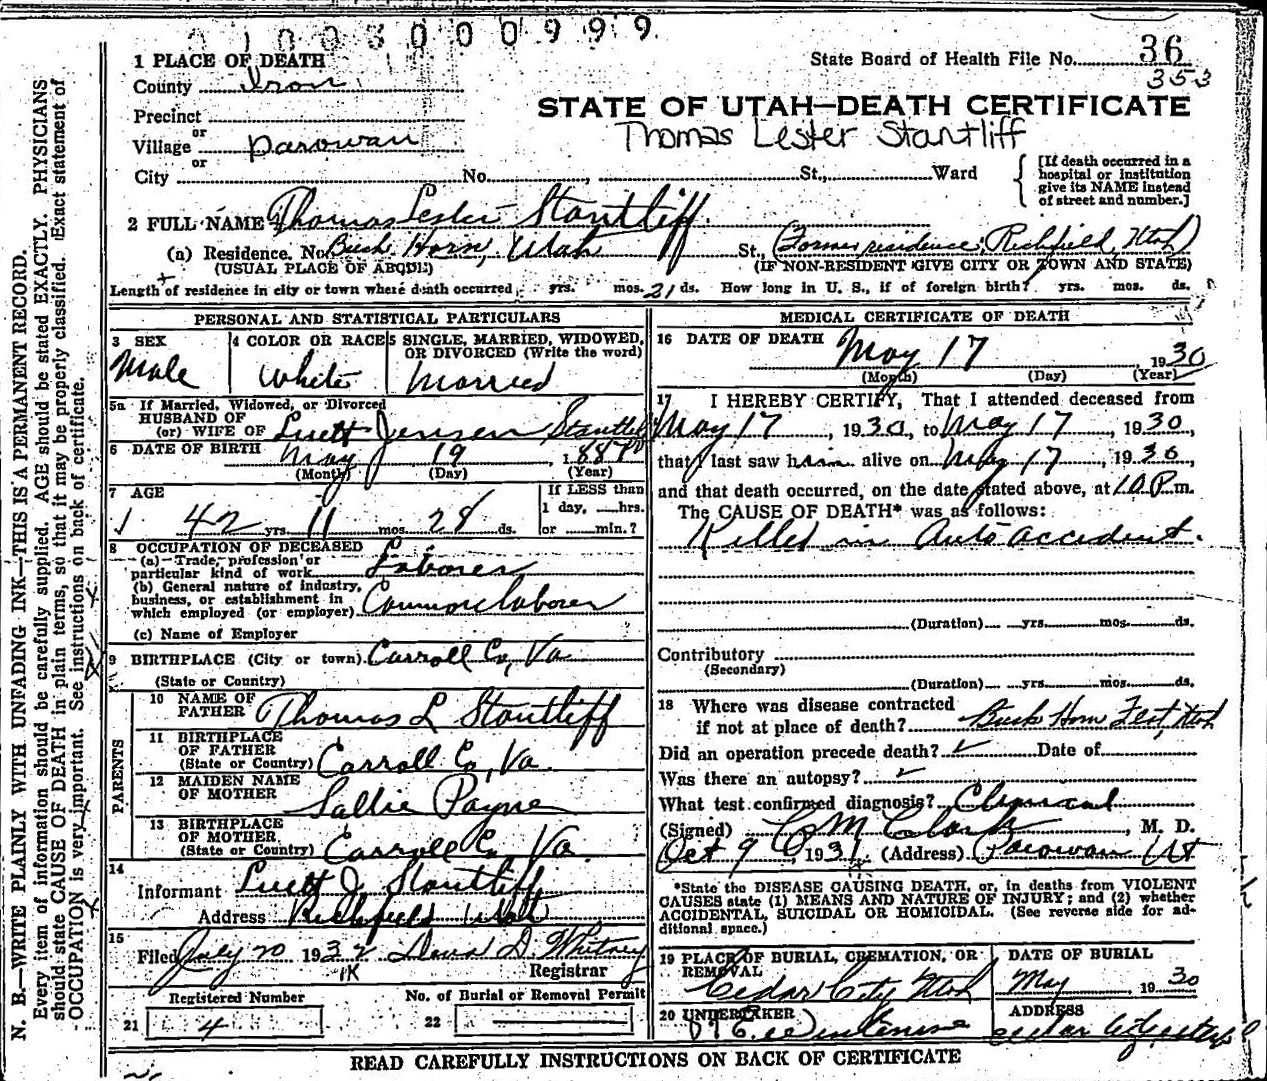 01003000999
1 PLACE OF DEATH
State Board of Health File No. 36
353
County Iron
STATE OF UTAH—DEATH CERTIFICATE
Precinct
or
Village Parowan
Thomas Lester Stantliff
or
City No. , St., Ward
[If death occurred in a hospital or institution give its NAME instead of street and number.]
2 FULL NAME Thomas Lester Stantliff.
(a) Residence. No. Buck Horn, Utah St., (Former residence, Richfield, Utah)
(USUAL PLACE OF ABODE) (IF NON-RESIDENT GIVE CITY OR TOWN AND STATE)
Length of residence in city or town where death occurred yrs. mos. 21 ds. How long in U. S., if of foreign birth? yrs. mos. ds.
PERSONAL AND STATISTICAL PARTICULARS
3 SEX 4 COLOR OR RACE 5 SINGLE, MARRIED, WIDOWED, OR DIVORCED (Write the word)
Male White Married
5a If Married, Widowed, or Divorced
HUSBAND OF
(or) WIFE OF Luett Jensen Stantliff
6 DATE OF BIRTH May 19 188
(Month) (Day) (Year)
7 AGE If LESS than
1 day, hrs.
42 yrs. 11 mos. 28 ds. or min.?
8 OCCUPATION OF DECEASED
(a) Trade, profession or
particular kind of work Laborer
(b) General nature of industry,
business, or establishment in
which employed (or employer) Common laborer
(c) Name of Employer
9 BIRTHPLACE (City or town) Carroll Co, Va
(State or Country)
PARENTS
10 NAME OF
FATHER Thomas L Stantliff
11 BIRTHPLACE
OF FATHER
(State or Country) Carroll Co, Va.
12 MAIDEN NAME
OF MOTHER Sallie Payne
13 BIRTHPLACE
OF MOTHER
(State or Country) Carroll Co Va.
14
Informant Luett J. Stantliff
Address Richfield Utah
15
Filed July 20 1932 D. Whitney
Registrar
1K
Registered Number No. of Burial or Removal Permit
21 4 22
MEDICAL CERTIFICATE OF DEATH
16 DATE OF DEATH May 17 1930
(Month) (Day) (Year)
17 I HEREBY CERTIFY, That I attended deceased from
May 17, 1930, to May 17, 1930,
that I last saw him alive on May 17, 1930,
and that death occurred, on the date stated above, at 10 P.m.
The CAUSE OF DEATH* was as follows:
Killed in Auto accident.
(Duration) yrs. mos. ds.
Contributory
(Secondary)
(Duration) yrs. mos. ds.
18 Where was disease contracted
if not at place of death? Buck Horn Flat, Utah
Did an operation precede death? ✓ Date of
Was there an autopsy? ✓
What test confirmed diagnosis?
(Signed) C M Clark, M. D.
Oct 9, 1931, (Address) Parowan Ut
*State the DISEASE CAUSING DEATH, or, in deaths from VIOLENT
CAUSES state (1) MEANS AND NATURE OF INJURY; and (2) whether
ACCIDENTAL, SUICIDAL OR HOMICIDAL. (See reverse side for ad-
ditional space.)
19 PLACE OF BURIAL, CREMATION, OR REMOVAL DATE OF BURIAL
Cedar City Utah May 1930
20 UNDERTAKER ADDRESS
Cedar City
READ CAREFULLY INSTRUCTIONS ON BACK OF CERTIFICATE
N. B.—WRITE PLAINLY WITH UNFADING INK—THIS IS A PERMANENT RECORD.
Every item of information should be carefully supplied. AGE should be stated EXACTLY. PHYSICIANS
should state CAUSE OF DEATH in plain terms, so that it may be properly classified. Exact statement of
OCCUPATION is very important. See instructions on back of certificate.